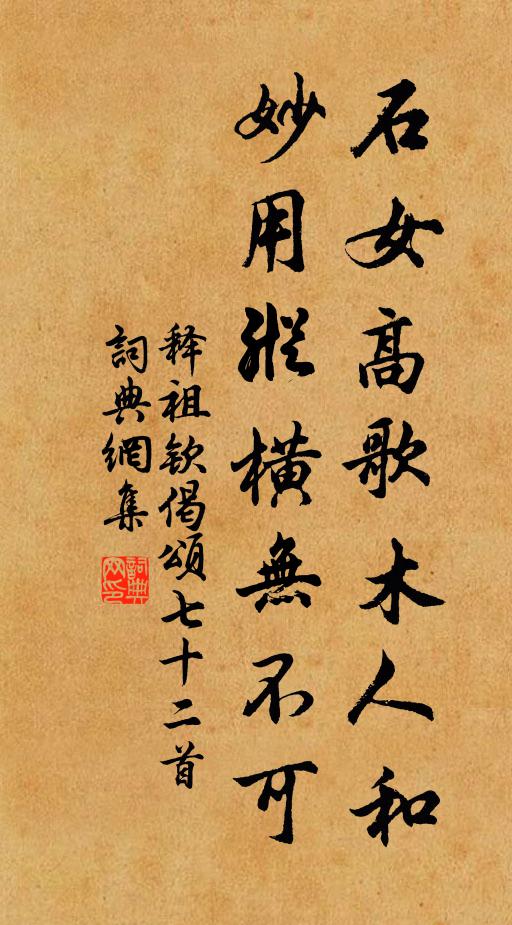 石女高歌木人和
妙用縱橫無不可
释祖钦偈頌七十二首
詞典網集
詞典网印